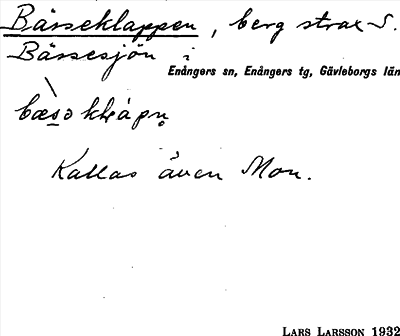 Bärseklappen, berg strax S.
Bärsesjön i
Enångers sn, Enångers tg, Gävleborgs län
Kallas även Mon.
LARS LARSSON 1932